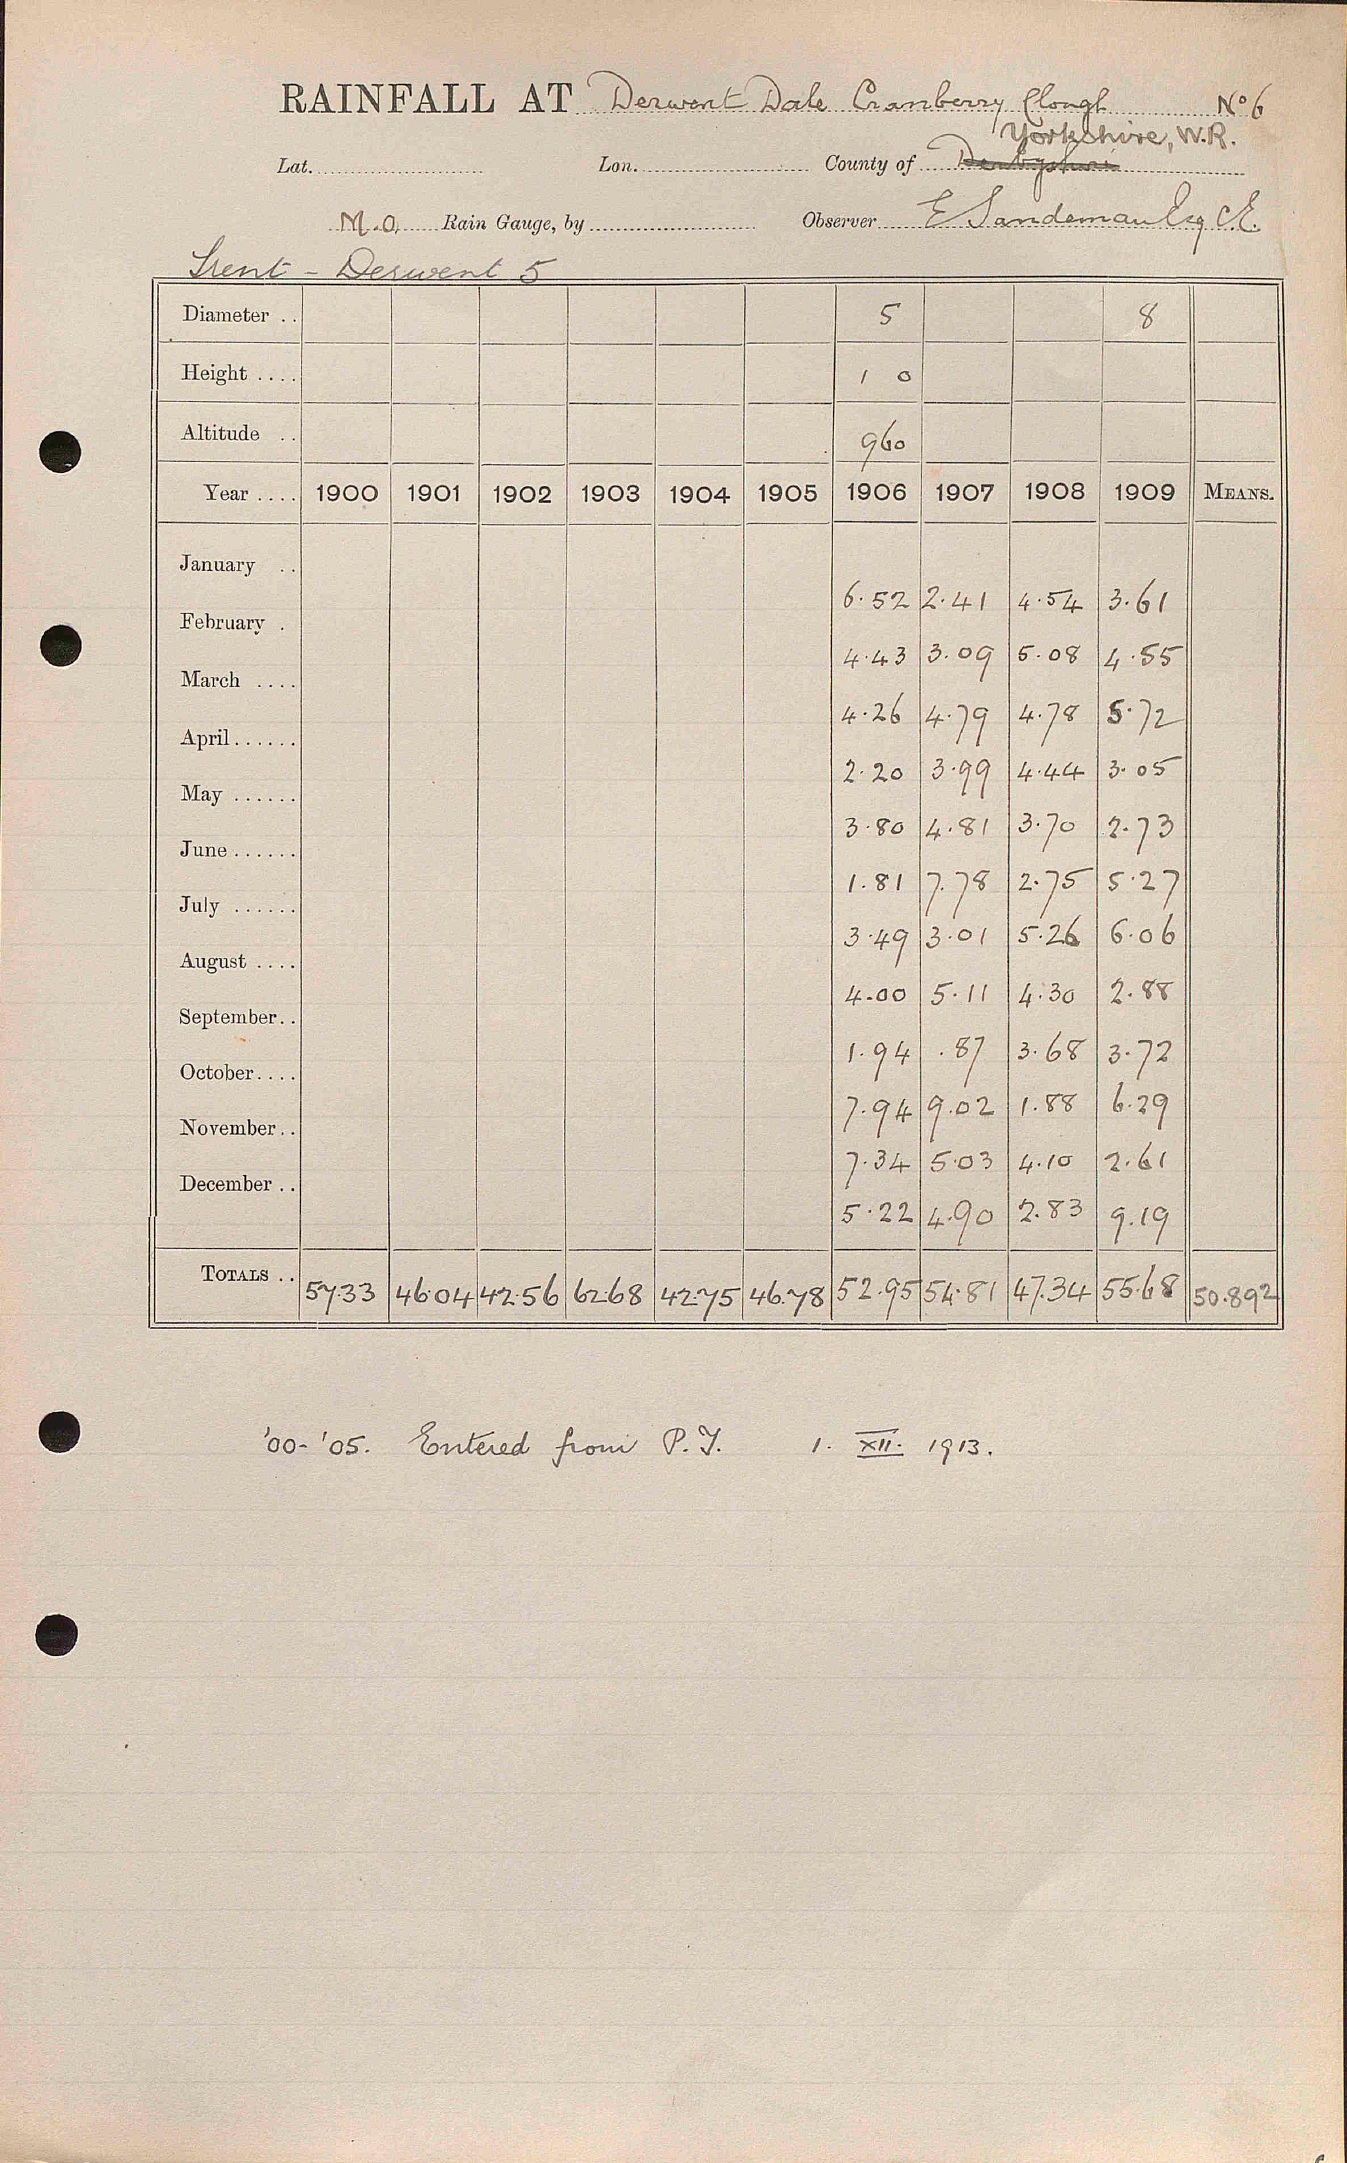 RAINFALL AT Derwent Dale Cranberry Clough No 6
Yorkshire, W.R.
Lat. Lon. County of Derbyshire
M.O. Rain Gauge, by Observer E Sandeman Esq C.E.
Trent - Derwent 5
Diameter .. 5 8
Height .... 1 0
Altitude .. 960
Year .... 1900 1901 1902 1903 1904 1905 1906 1907 1908 1909 MEANS.
January ..
6.52 2.41 4.54 3.61
February .
4.43 3.09 5.08 4.55
March ....
4.26 4.79 4.78 5.72
April......
2.20 3.99 4.44 3.05
May ......
3.80 4.81 3.70 2.73
June......
1.81 7.78 2.75 5.27
July ......
3.49 3.01 5.26 6.06
August ....
4.00 5.11 4.30 2.88
September..
1.94 .87 3.68 3.72
October....
7.94 9.02 1.88 6.29
November..
7.34 5.03 4.10 2.61
December ..
5.22 4.90 2.83 9.19
TOTALS .. 57.33 46.04 42.56 62.68 42.75 46.78 52.95 54.81 47.34 55.68 50.892
'00-'05. Entered from P.T. 1. XII. 1913.